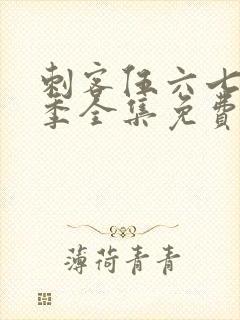 刺客伍六七
季全集免费
薄荷青青